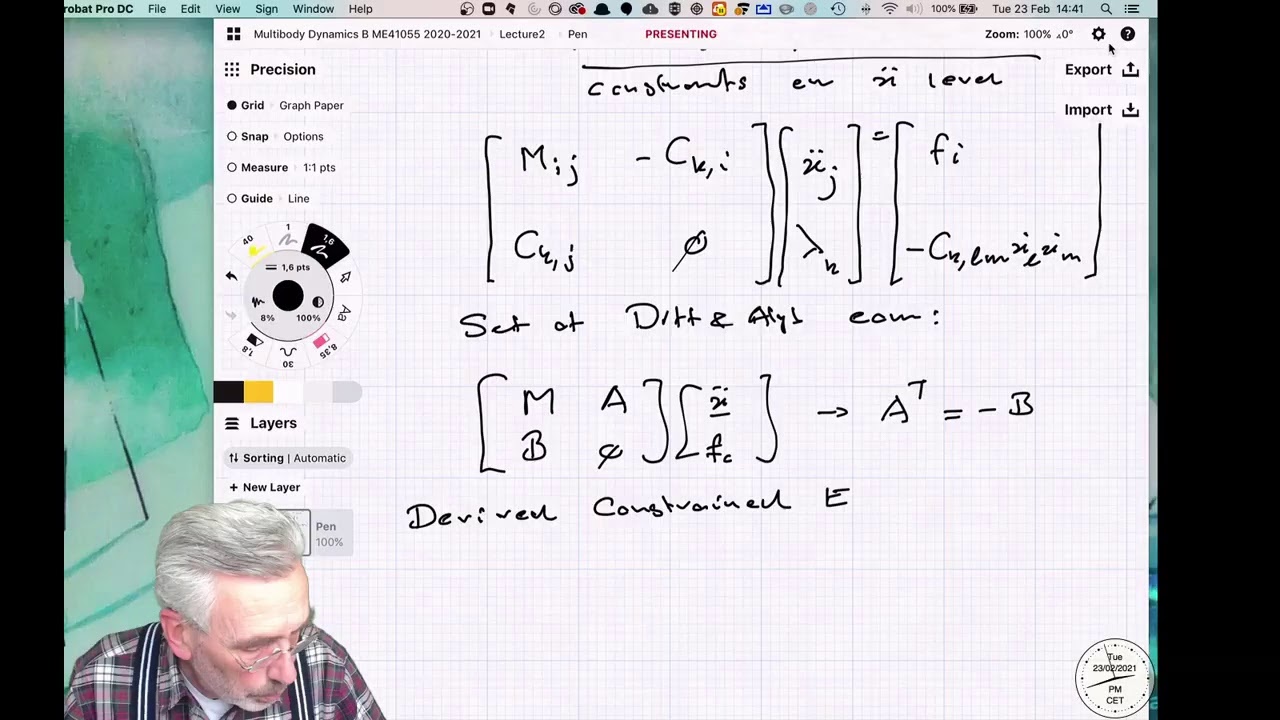 robat Pro DC File Edit View Sign Window Help 100% Tue 23 Feb 14:41
Multibody Dynamics B ME41055 2020-2021 › Lecture2 › Pen PRESENTING Zoom: 100% ⊿0°
Precision
Export
Import
Grid › Graph Paper
Snap › Options
Measure › 1:1 pts
Guide › Line
40 1 1,6
1,6 pts
8% 100%
Aa
1,8 30 8,35
Layers
Sorting | Automatic
+ New Layer
Pen
100%
constraints on ẍ level
[ M_ij -C_k,i ] [ ẍ_j ] = [ f_i ]
[ C_k,j ∅ ] [ λ_k ] [ -C_k,lm ẋ_l ẋ_m ]
Set of Diff & Alg eqn :
[ M A ] [ ẍ ] → A^T = - B
[ B ∅ ] [ f_c ]
Derived Constrained E
Tue
23/02/2021
PM
CET